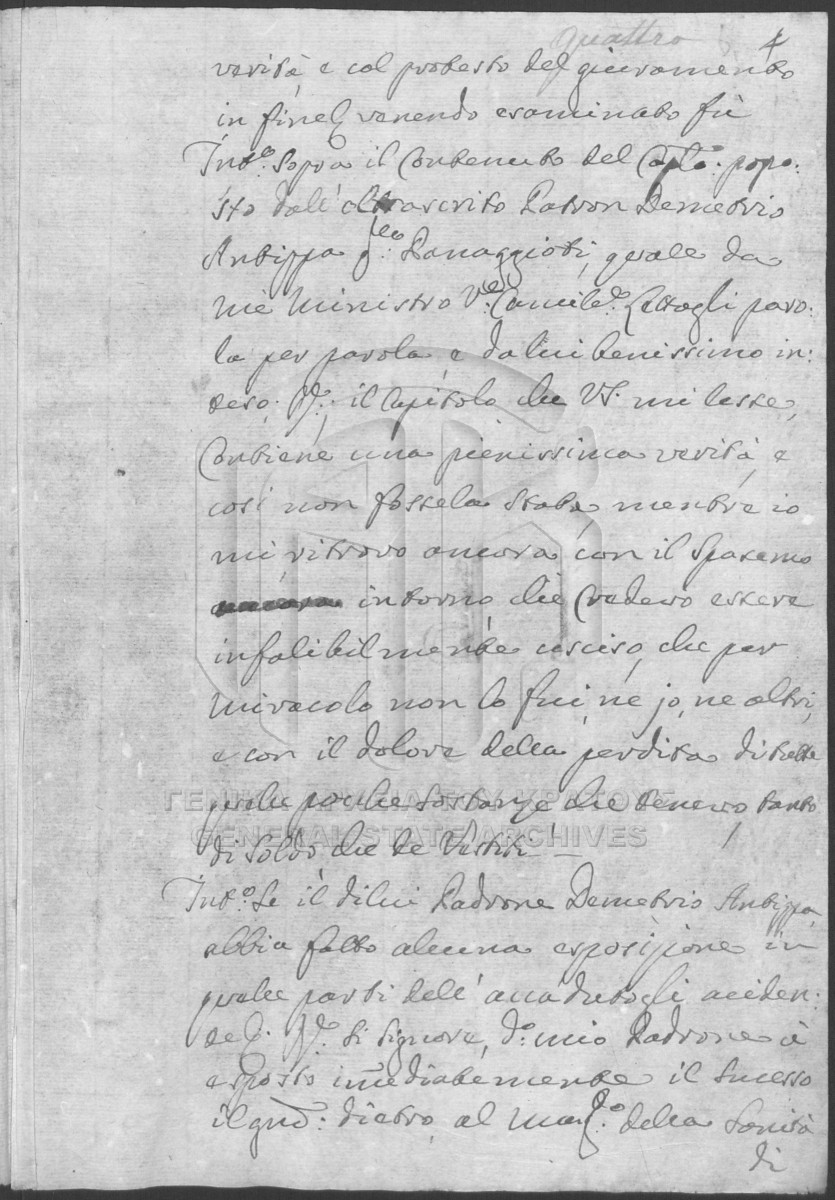 quattro 4
verità, e col protesto del giuramento
in fine venendo esaminato fù
Int.º Sopra il Contenuto del Caplo. propo:
sto dall'oltrascrito Patron Demetrio
Antippa Panaggioti, quale da
me Ministro V.e Lettogli paro:
la per parola, e da lui benissimo in:
teso. R.: il Capitolo che VS. mi lesse,
Contiene una pienissima verità, e
così non fossela stata mentre io
mi ritrovo ancora con il Spasemo
intorno che Credevo essere
infalibilmente ucciso, che per
Miracolo non lo fui ne jo, ne altri,
e con il dolore della perdita di tutte
quelle poche Sostanze che tenevo tanto
di Soldo che de Vestiti —
Int.º Se il di lui Padrone Demetrio Antippa
abbia fatto alcuna esposizione in
qualche parti dell'accadutogli aciden:
te. R.º Si Signore, d.º mio Padrone à
esposto imediatemente il Sucesso
il gno: dietro, al della Sanità
di
ΓΕΝΙΚΑ ΑΡΧΕΙΑ ΤΟΥ ΚΡΑΤΟΥΣ
GENERAL STATE ARCHIVES